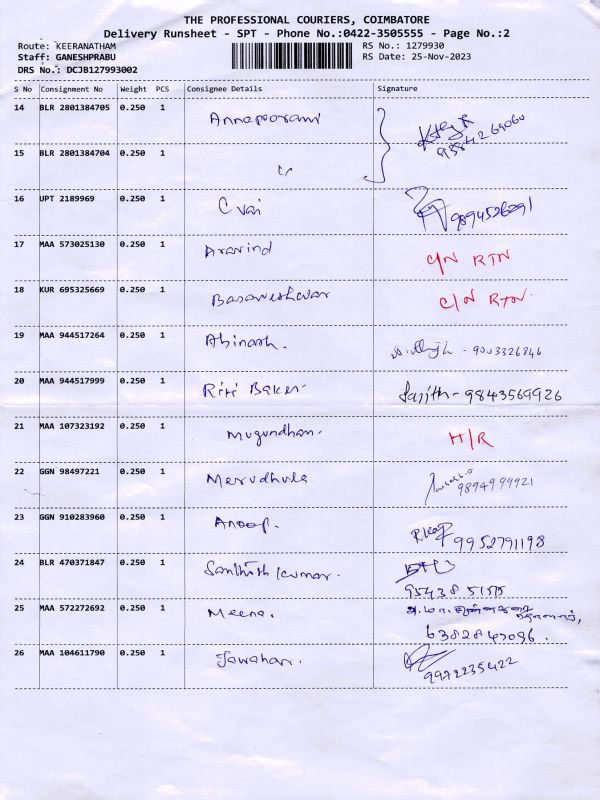 THE PROFESSIONAL COURIERS, COIMBATORE
Delivery Runsheet - SPT - Phone No.:0422-3505555 - Page No.:2
Route: KEERANATHAM RS No.: 1279930
Staff: GANESHPRABU RS Date: 25-Nov-2023
DRS No.: DCJB127993002
S No Consignment No Weight PCS Consignee Details Signature
14 BLR 2801384705 0.250 1 Annapoorani
15 BLR 2801384704 0.250 1
16 UPT 2189969 0.250 1 9894526291
17 MAA 573025130 0.250 1 Aravind C/N RTN
18 KUR 695325669 0.250 1 Basaveshwar C/N RTN
19 MAA 944517264 0.250 1 Abinash. - 9003326846
20 MAA 944517999 0.250 1 Riti Baker Sajith - 9843569926
21 MAA 107323192 0.250 1 Mugundhan. H/R
22 GGN 98497221 0.250 1 Merudhula 9894999921
23 GGN 910283960 0.250 1 Anoop. 9952791198
24 BLR 470371847 0.250 1 Santhosh Kumar.
25 MAA 572272692 0.250 1 Meena.
6382847086.
26 MAA 104611790 0.250 1 Jawahar.
9972235422